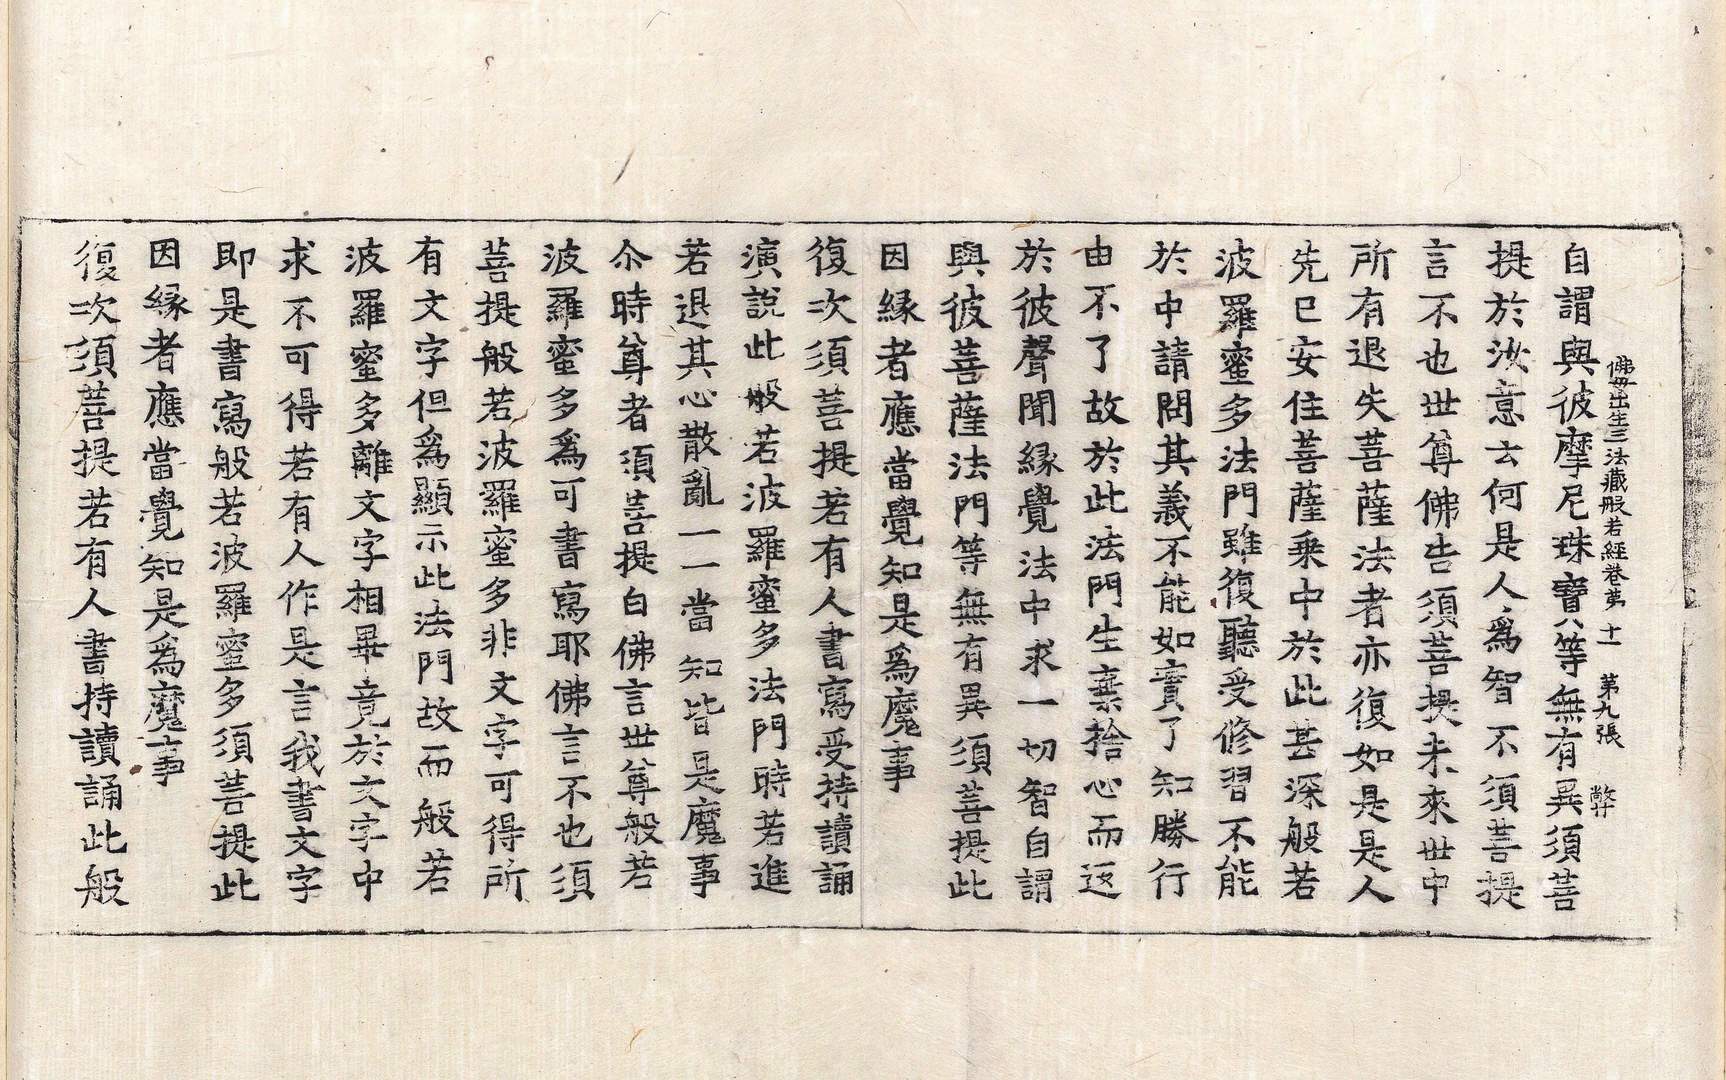 佛母出生三法藏般若經卷第十一　第九張　弊
自謂與彼摩尼珠寶等無有異須菩
提於汝意云何是人為智不須菩提
言不也世尊佛告須菩提未來世中
所有退失菩薩法者亦復如是是人
先已安住菩薩乘中於此甚深般若
波羅蜜多法門雖復聽受修習不能
於中請問其義不能如實了知勝行
由不了故於此法門生棄捨心而返
於彼聲聞緣覺法中求一切智自謂
與彼菩薩法門等無有異須菩提此
因緣者應當覺知是為魔事
復次須菩提若有人書寫受持讀誦
演說此般若波羅蜜多法門時若進
若退其心散亂一一當知皆是魔事
尒時尊者須菩提白佛言世尊般若
波羅蜜多為可書寫耶佛言不也須
菩提般若波羅蜜多非文字可得所
有文字但為顯示此法門故而般若
波羅蜜多離文字相畢竟於文字中
求不可得若有人作是言我書文字
即是書寫般若波羅蜜多須菩提此
因緣者應當覺知是為魔事
復次須菩提若有人書持讀誦此般